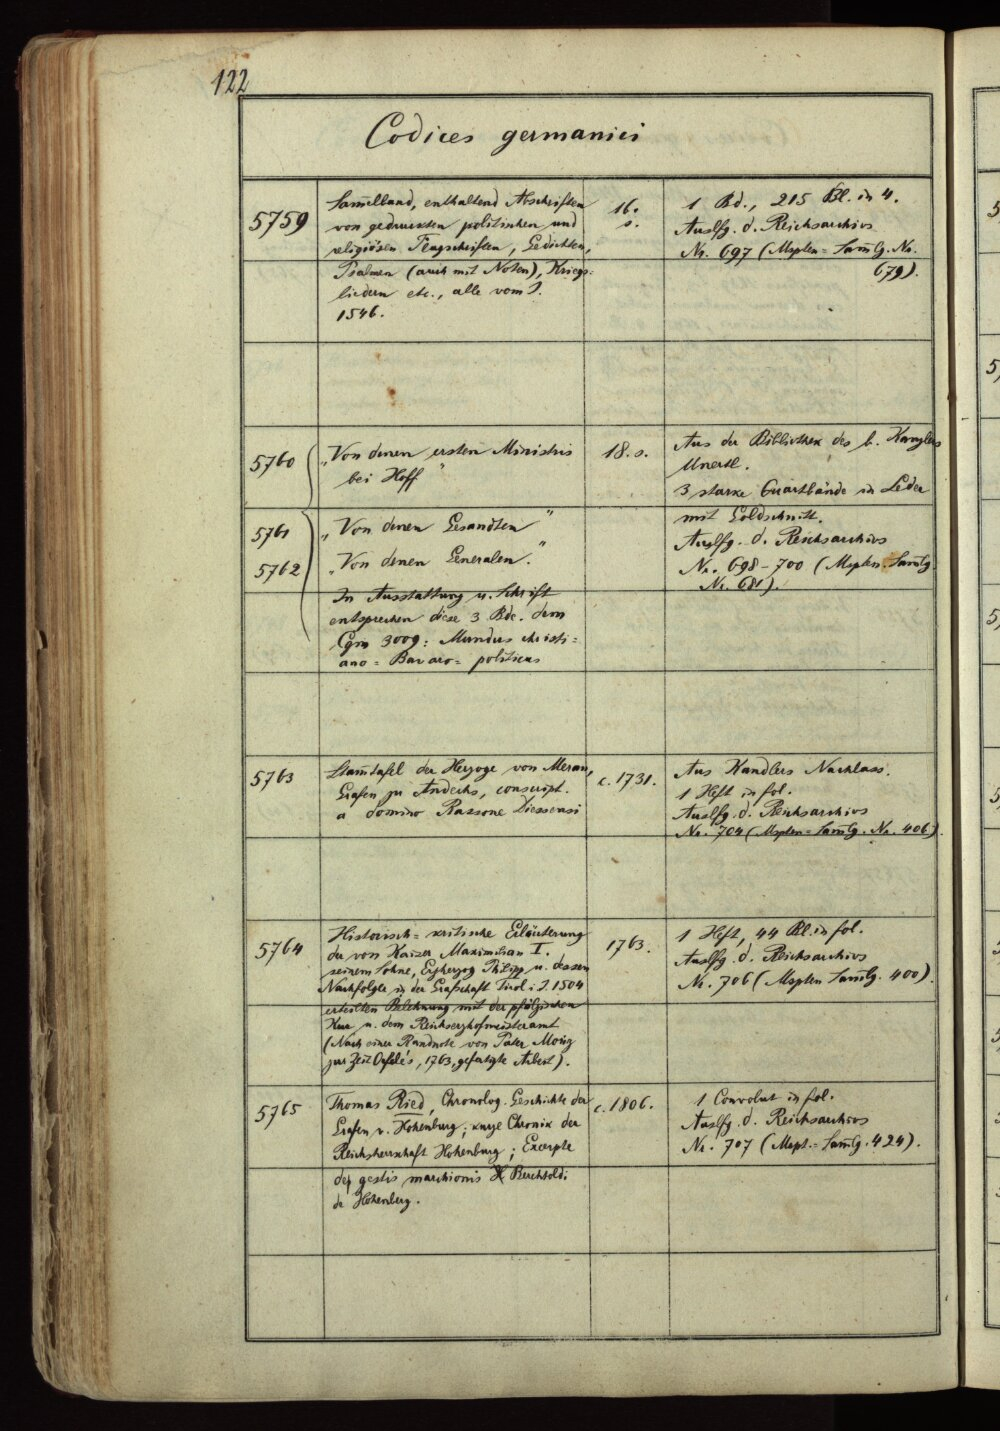 122
Codices germanici
5759
Sam̄elband, enthaltend Abschriften
von gedruckten politischen und
religiösen Flugschriften, Gedichten,
Psalmen (auch mit Noten), Kriegs-
liedern etc., alle vom J.
1546.
16.
s.
1 Bd., 215 Bl. in 4.
Auslfg. d. Reichsarchivs
Nr. 697 (Mspten-Sam̄lg. No.
679).
5760
„Von denen ersten Ministris
bei Hoff"
18. s.
Aus der Bibliothek des b. Kanzlers
Unertl.
3 starke Quartbände in Leder
mit Goldschnitt.
Auslfg. d. Reichsarchivs
Nr. 698-700 (Mspten-Sam̄lg.
Nr. 681).
5761
„Von denen Gesandten"
5762
„Von denen Generalen."
In Ausstattung u. Schrift
entsprechen diese 3 Bde. dem
Cgm 3009: Mundus christi-
ano-Bavaro-politicus
5763
Stam̄tafel der Herzoge von Meran,
Grafen zu Andechs, conscript.
a domino Rassone Diessensi
c. 1731.
Aus Kandlers Nachlass.
1 Heft in fol.
Auslfg. d. Reichsarchivs
Nr. 704 (Mspten-Sam̄lg. No. 406).
5764
Historisch-kritische Erläuterung
der von Kaiser Maximilian I.
seinem Sohne, Erzherzog Philipp u. dessen
Nachfolger in der Grafschaft Tirol i. J. 1504
erteilten Belehnung mit der pfälzischen
Kur u. dem Reichserzhofmeisteramt
(Nach einer Randnote von Pater Moriz
zur Zeit Oefele's, 1763, gefertigte Arbeit).
1763.
1 Heft, 44 Bl. in fol.
Auslfg. d. Reichsarchivs
Nr. 706 (Mspten Sam̄lg. 400).
5765
Thomas Ried, Chronolog. Geschichte der
Grafen v. Hohenburg; kurze Chronik der
Reichsherrschaft Hohenburg; Excerpte
de gestis marchionis Berchtoldi
de Hohenberg.
c. 1806.
1 Convolut in fol.
Auslfg. d. Reichsarchivs
Nr. 707 (Mspt.-Sam̄lg. 424).